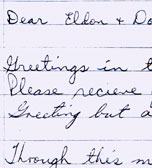 Dear Eldon + Do
Greetings in t
Please recieve
Greeting but a
Through this m